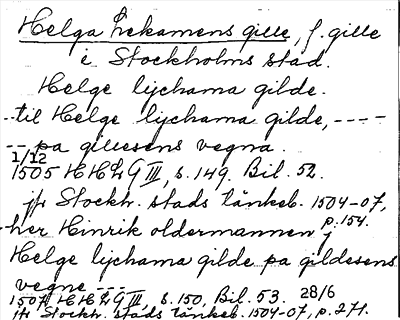 Helga Lekamens gille, f. gille
i Stockholms stad.
Helge lijchama gilde.
--til Helge lijchama gilde, ----
-- pa gillesens vegna.
1/12
1505 HH2 G III, s. 149. Bil. 52.
jfr Stockh. stads tänkeb. 1504-07,
p. 154.
her Hinrik oldermannen j
Helge lijchama gilde pa gildesens
vegne ---
28/6
1507 HH2 G III, s. 150, Bil. 53.
jfr Stockh. stads tänkeb. 1504-07, p. 271.